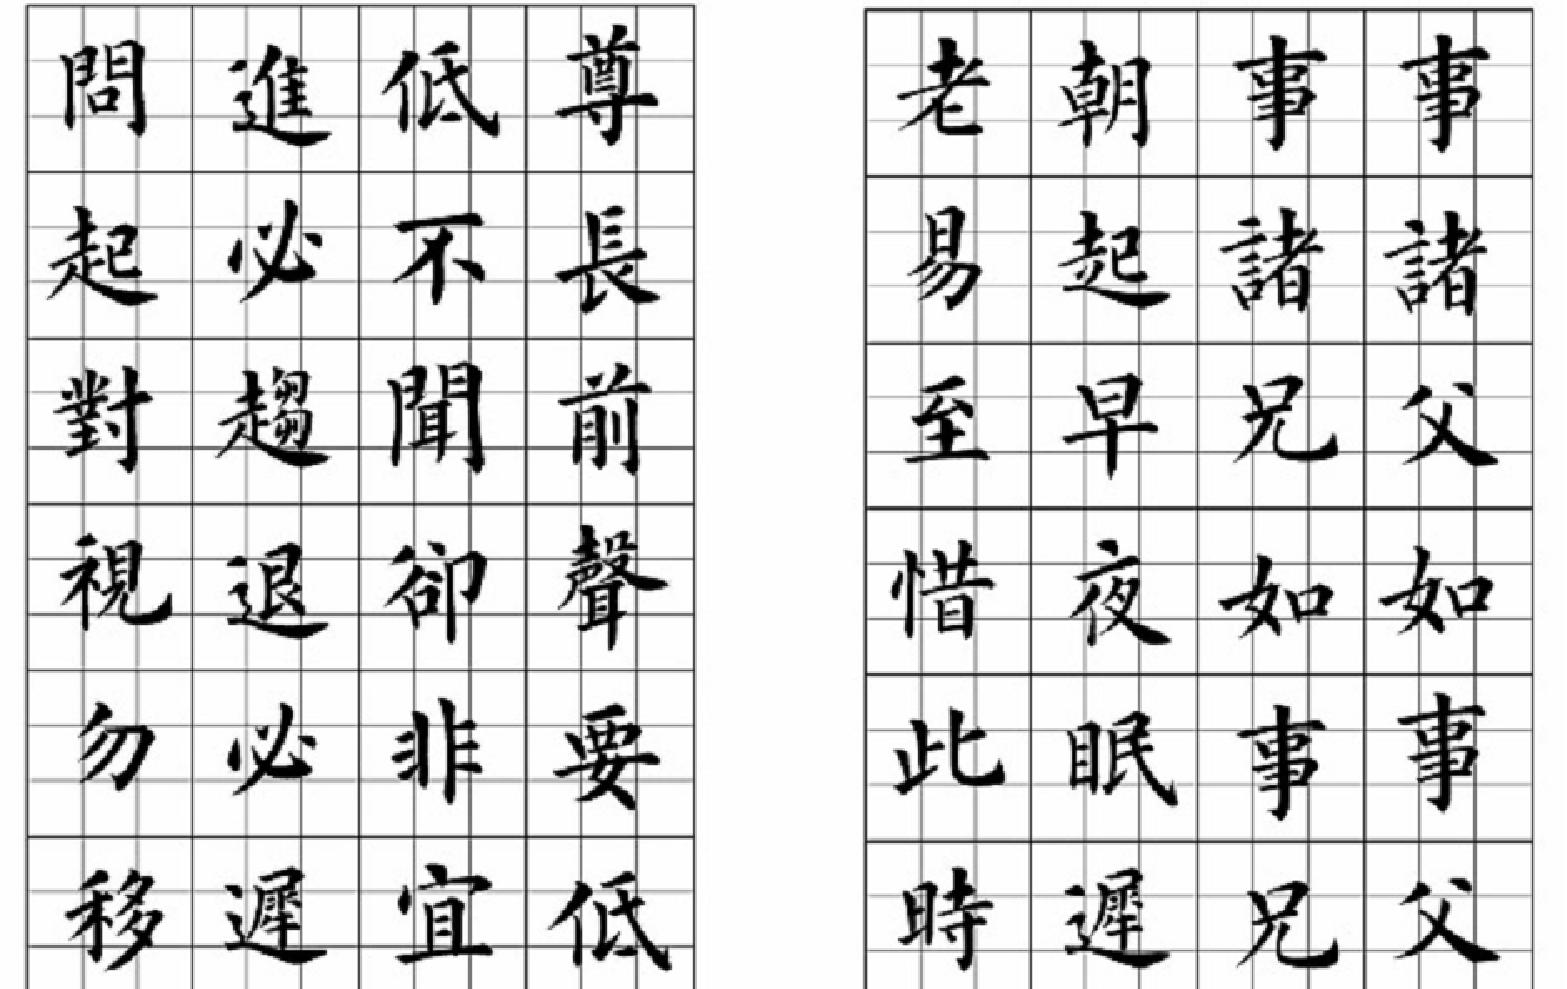 事諸父如事父
事諸兄如事兄
朝起早夜眠遲
老易至惜此時
尊長前聲要低
低不聞卻非宜
進必趨退必遲
問起對視勿移